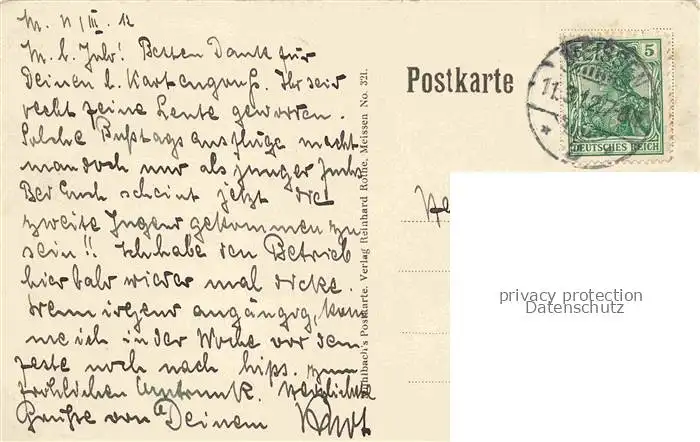 M. 11/III. 12
M. l. Jubs! Besten Dank für
Deinen l. Kartengruß. Ihr seid
recht feine Leute geworden.
Solche Bußtagsausflüge macht
man doch nur als junger
Bei Euch scheint jetzt die
zweite Jugend gekommen zu
sein!! Ich habe den Betrieb
hier bald wieder mal dicke.
Wenn irgend angängig, kom
me ich in der Woche vor dem
Feste noch nach Lips. zum
fröhlichen Umtrunk. Herzlichste
Grüße von Deinem
Bleilbach's Postkarte. Verlag Reinhard Rothe, Meissen No. 321.
Postkarte
MEISSEN
11.3.12. 7-8N
5
DEUTSCHES REICH
privacy protection
Datenschutz